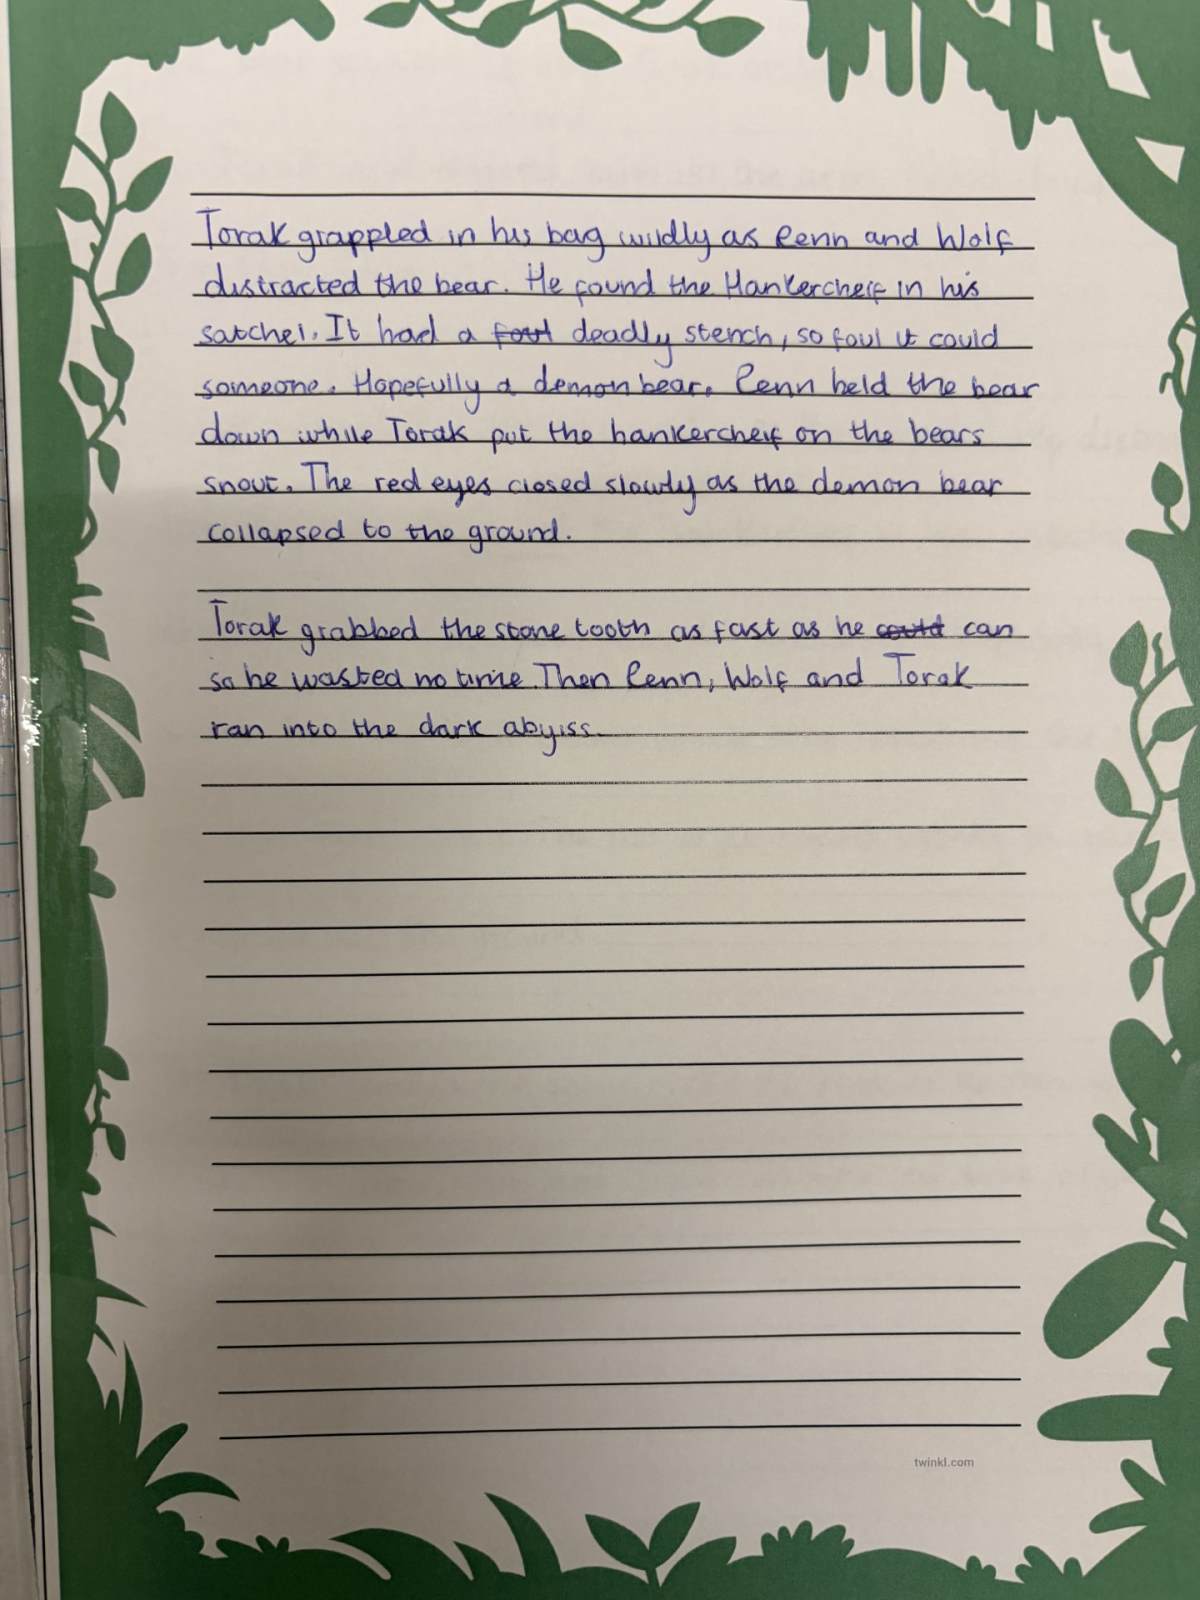 Torak grappled in his bag wildly as Renn and Wolf
distracted the bear. He found the Hankercheif in his
satchel. It had a foul deadly stench, so foul it could
someone. Hopefully a demon bear. Renn held the bear
down while Torak put the hankercheif on the bears
snout. The red eyes closed slowly as the demon bear
collapsed to the ground.
Torak grabbed the stone tooth as fast as he could can
so he wasted no time. Then Renn, Wolf and Torak
ran into the dark abyiss.
twinkl.com